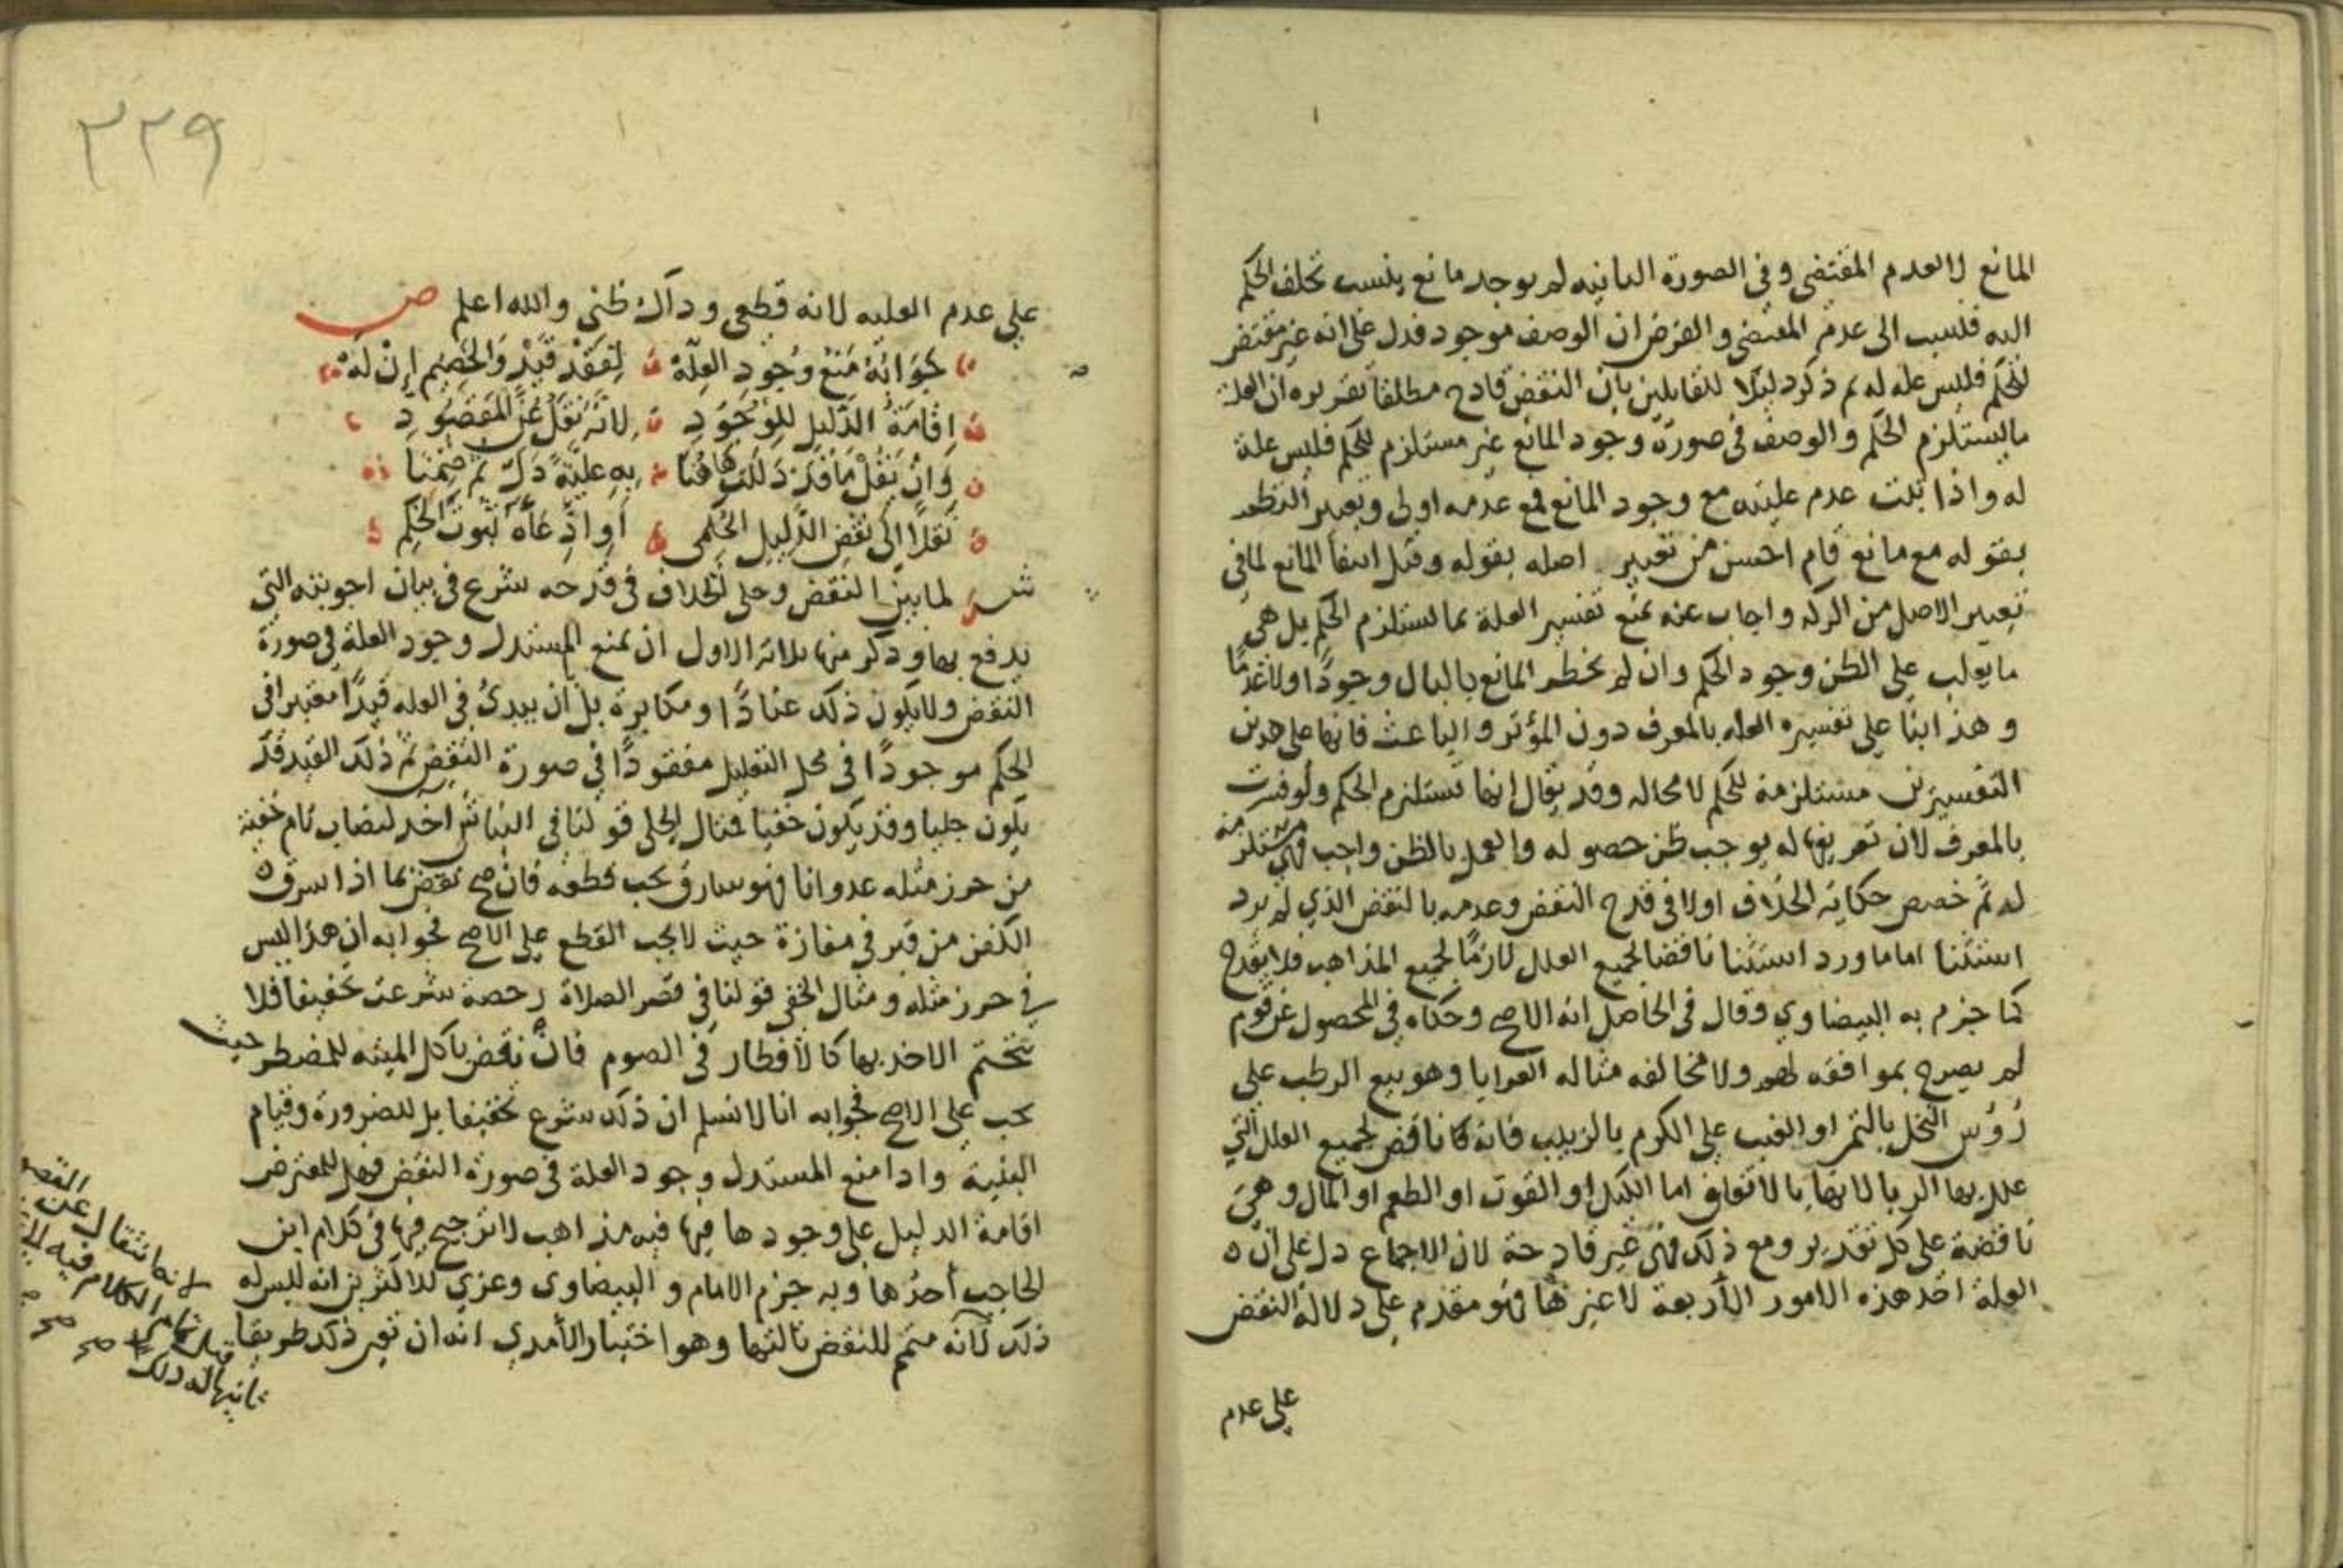 المانع لا لعدم المقتضي وفي الصورة الثانيه لم يوجد مانع ينسب تخلف الحكم
اليه فنسب الى عدم المقتضي والفرض ان الوصف موجود فدل على انه غير مقتض
للحكم فليس علة له ثم ذكر دليلا للقايلين بان النقض قادح مطلقا تقريره ان العلة
ما يستلزم الحكم والوصف في صورة وجود المانع غير مستلزم للحكم فليس علة
له واذا ثبت عدم عليته مع وجود المانع فمع عدمه اولى وتعبير النظم
بقوله مع مانع قام احسن من تعبير اصله بقوله وقبل انتفا المانع لما في
تعبير الاصل من الركه واجاب عنه بمنع تفسير العلة بما يستلزم الحكم بل هي
ما يغلب على الظن وجود الحكم وان لم يخطر المانع بالبال وجودا ولا عدما
وهذا بنا على تفسيره العله بالمعرف دون المؤثر والباعث فانها على هذين
التفسيرين مستلزمة للحكم لا محاله وقد يقال انها تستلزم الحكم ولو فسرت
بالمعرف لان تعريفها له يوجب ظن حصوله والعمل بالظن واجب فهي مستلزمة
له ثم خصص حكاية الخلاف اولا في قدح النقض وعدمه بالنقض الذي لم يرد
استثنا اما ما ورد استثنا ناقضا لجميع العلل لازما لجميع المذاهب فلا يقدح
كما جزم به البيضاوي وقال في الحاصل انه الاصح وحكاه في المحصول عن قوم
لم يصرح بموافقه لهم ولا مخالفه مثاله العرايا وهو بيع الرطب على
رؤس النخل بالتمر او العنب على الكرم بالزبيب فانه ناقض لجميع العلل التي
علل بها الربا لانها بالاتفاق اما الكيل او القوت او الطعم او المال وهي
ناقضة على كل تقدير ومع ذلك فهي غير قادحة لان الاجماع دل على ان
العلة احد هذه الامور الاربعة لا غيرها فهو مقدم على دلالة النقض
على عدم
٣٢٩
على عدم العليه لانه قطعي وذاك ظني والله اعلم ص
جوابه منع وجود العله لفقد قيد والخصم ان له
اقامة الدليل للوجود لانه نقل عن المقصود
وان يقل ما قد دللت هاهنا به علية دل ثم ضمنا
نقلا الى نقض الدليل الحكمي او ادعاه ثبوت الحكم
ش لما بين النقض وحكى الخلاف في قدحه شرع في بيان اجوبته التي
يدفع بها وذكر منها ثلاثة الاول ان يمنع المستدل وجود العلة في صورة
النقض ولا يكون ذلك عنادا ومكابرة بل ان يبدئ في العله قيدا معتبرا في
الحكم موجودا في محل التعليل مفقودا في صورة النقض ثم ذلك القيد قد
يكون جليا وقد يكون خفيا فمثال الجلي قولنا في النباش اخذ لنصاب تام خفية
من حرز مثله عدوانا فهو سارق يجب قطعه فان صح نقض بما اذا سرق
الكفن من قبر في مفازة حيث لا يجب القطع على الاصح فجوابه ان هذا ليس
في حرز مثله ومثال الخفي قولنا في قصر الصلاة رخصة شرعت تخفيفا فلا
يتحتم الاخذ بها كالافطار في الصوم فان نقض باكل الميته للمضطر حيث
يجب على الاصح فجوابه انا لا نسلم ان ذلك شرع تخفيفا بل للضرورة وقيام
البنية واذا منع المستدل وجود العلة في صورة النقض فهل للمعترض
اقامة الدليل على وجودها فيها فيه مذاهب لا ترجيح فيها في كلام ابن
الحاجب أحدها وبه جزم الامام والبيضاوي وعزي للاكثرين انه ليس له
ذلك لانه متمم للنقض ثالثها وهو اختيار الأمدي انه ان تعين ذلك طريقا
لانه انتقال عن
قبل تمام الكلام فيه
ثانيها له ذلك صح صح